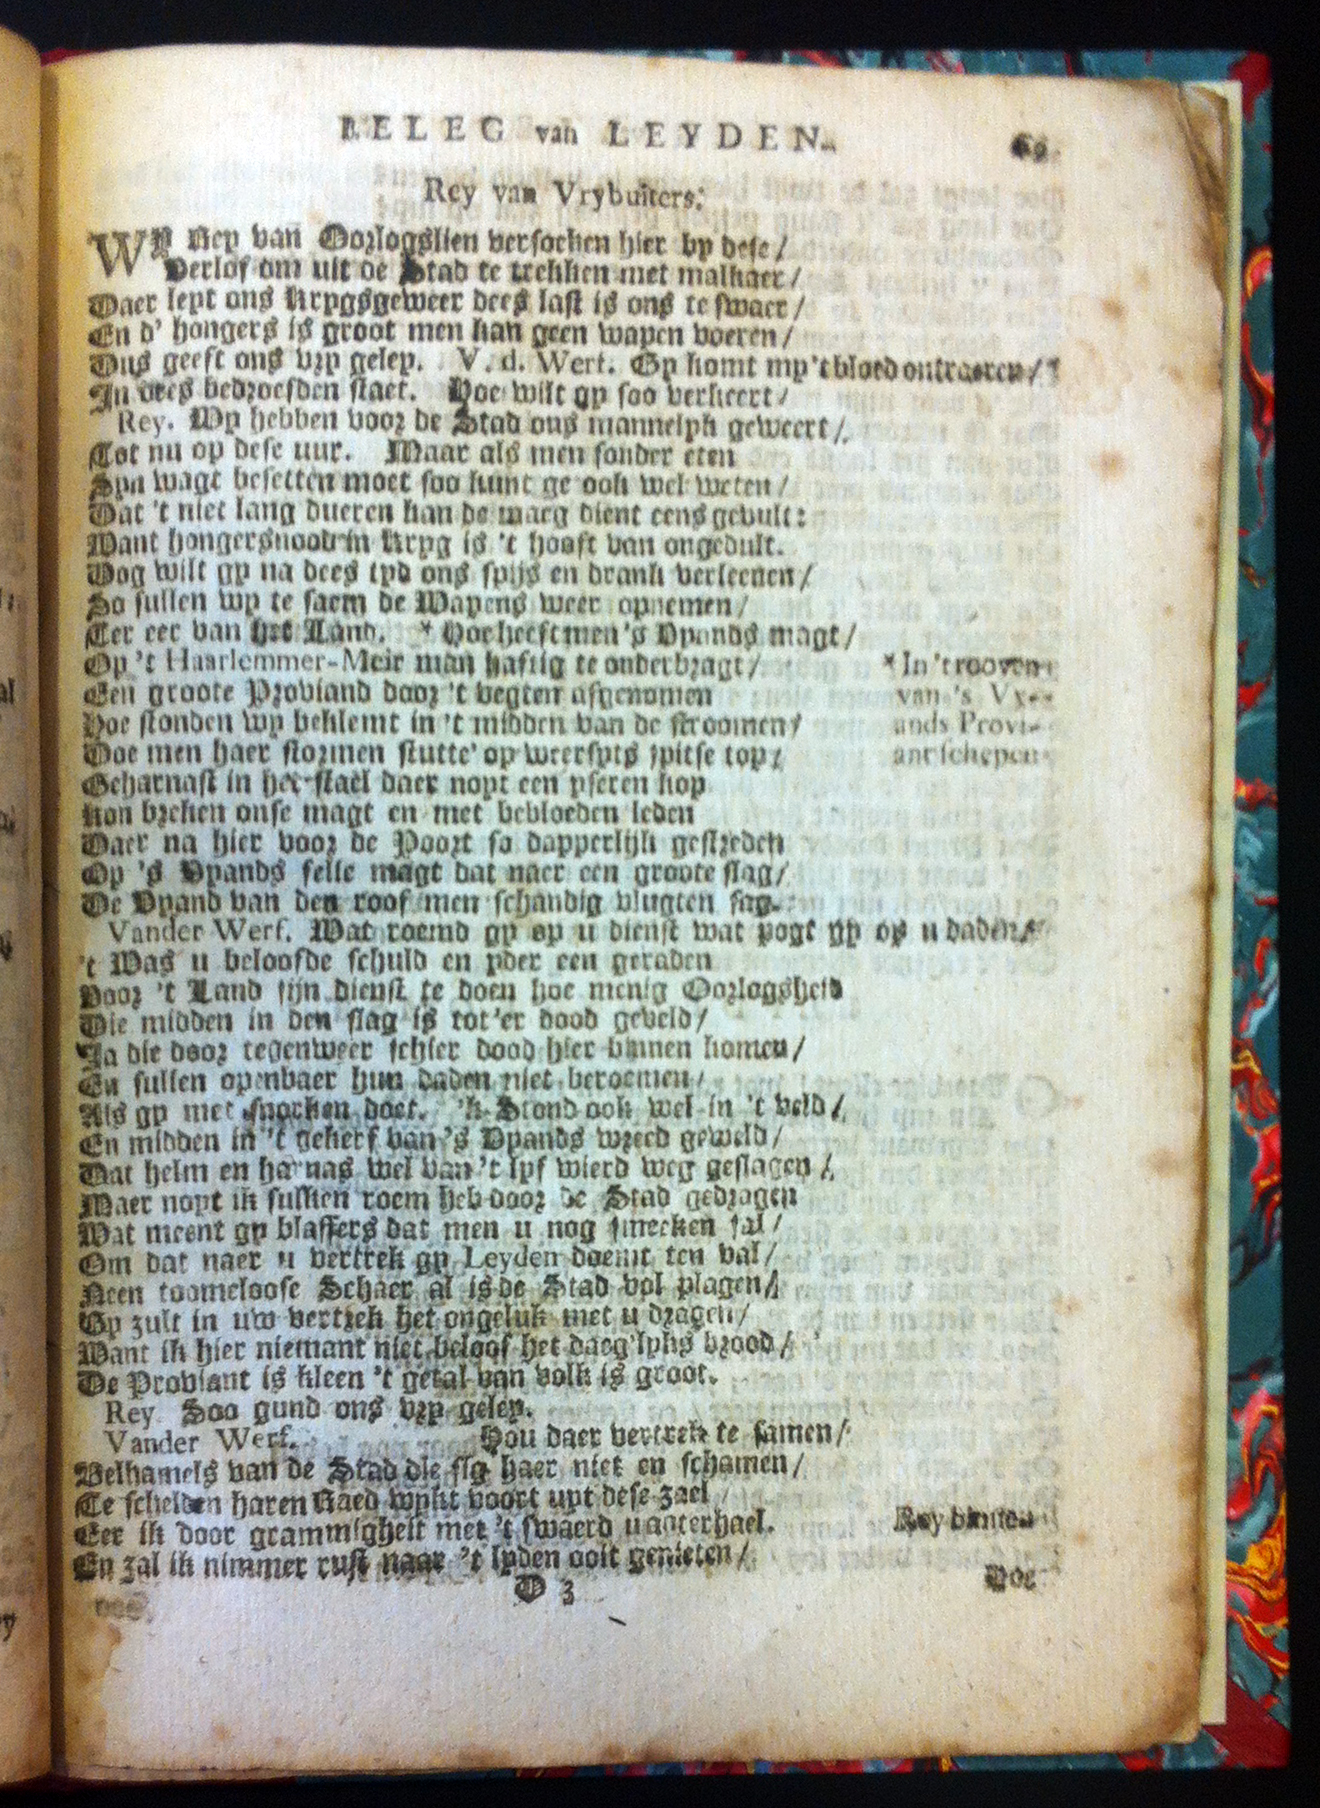 BELEG van LEYDEN.
Rey van Vrybuiters.
Wy Rey van Oorlogslien versoeken hier by dese /
Verlof om uit de Stad te trekken met malkaer /
Daer leyt ons Krygsgeweer dees last is ons te swaer /
En d' hongers is groot men kan geen wapen voeren /
Dus geeft ons vry geley. V. d. Werf. Gy komt my 't bloed ontroeren /
In dees bedroefden staet. Hoe wilt gy soo verkeert /
Rey. Wy hebben voor de Stad ons mannelyk geweert /
Tot nu op dese uur. Maar als men sonder eten
Syn wagt besetten moet soo kunt ge ook wel weten /
Dat 't niet lang dueren kan de maeg dient eens gevult:
Want hongersnood in Kryg is 't hooft van ongedult.
Dog wilt gy na dees tyd ons spijs en drank verleenen /
So sullen wy te saem de Wapens weer opnemen /
Ter eer van het Land. * Hoe heeft men 's Vyands magt /
Op 't Haarlemmer-Meir man haftig te onderbragt /
* In 't rooven
Een groote Proviand door 't vegten afgenomen
van 's Vy-
Hoe stonden wy beklemt in 't midden van de stroomen /
ands Provi-
Doe men haer stormen stutte' op weersyts spitse top /
antschepen
Geharnast in het stael daer noyt een yseren kop
Kon breken onse magt en met bebloeden leden
Daer na hier voor de Poort so dapperlijk gestreden
Op 's Vyands felle magt dat naer een groote slag /
De Vyand van den roof men schandig vlugten sag.
Vander Werf. Wat roemd gy op u dienst wat pogt gy op u daden /
't Was u beloofde schuld en yder een geraden
Voor 't Land sijn dienst te doen hoe menig Oorlogsheld
Die midden in den slag is tot 'er dood geveld /
Ja die door tegenweer schier dood hier binnen komen /
En sullen openbaer hun daden niet beroemen /
Als gy met snorken doet. 'k Stond ook wel in 't veld /
En midden in 't gekerf van 's Vyands wreed geweld /
Dat helm en harnas wel van 't lyf wierd weg geslagen /
Maer noyt ik sulken roem heb door de Stad gedragen
Wat meent gy blaffers dat men u nog smeeken sal /
Om dat naer u vertrek gy Leyden doemt ten val /
Neen toomeloose Schaer al is de Stad vol plagen /
Gy zult in uw vertrek het ongeluk met u dragen /
Want ik hier niemant niet beloof het daeg'lyks brood /
De Proviant is kleen 't getal van volk is groot.
Rey. Soo gund ons vry geley.
Vander Werf. Hou daer vertrek te samen /
Belhamels van de Stad die sig haer niet en schamen /
Te schelden haren Raed wykt voort uyt dese zael
Eer ik door grammigheit met 't swaerd u agterhael.
Rey binnen
En zal ik nimmer rust naar 't lyden ooit genieten /
D 3
Dog